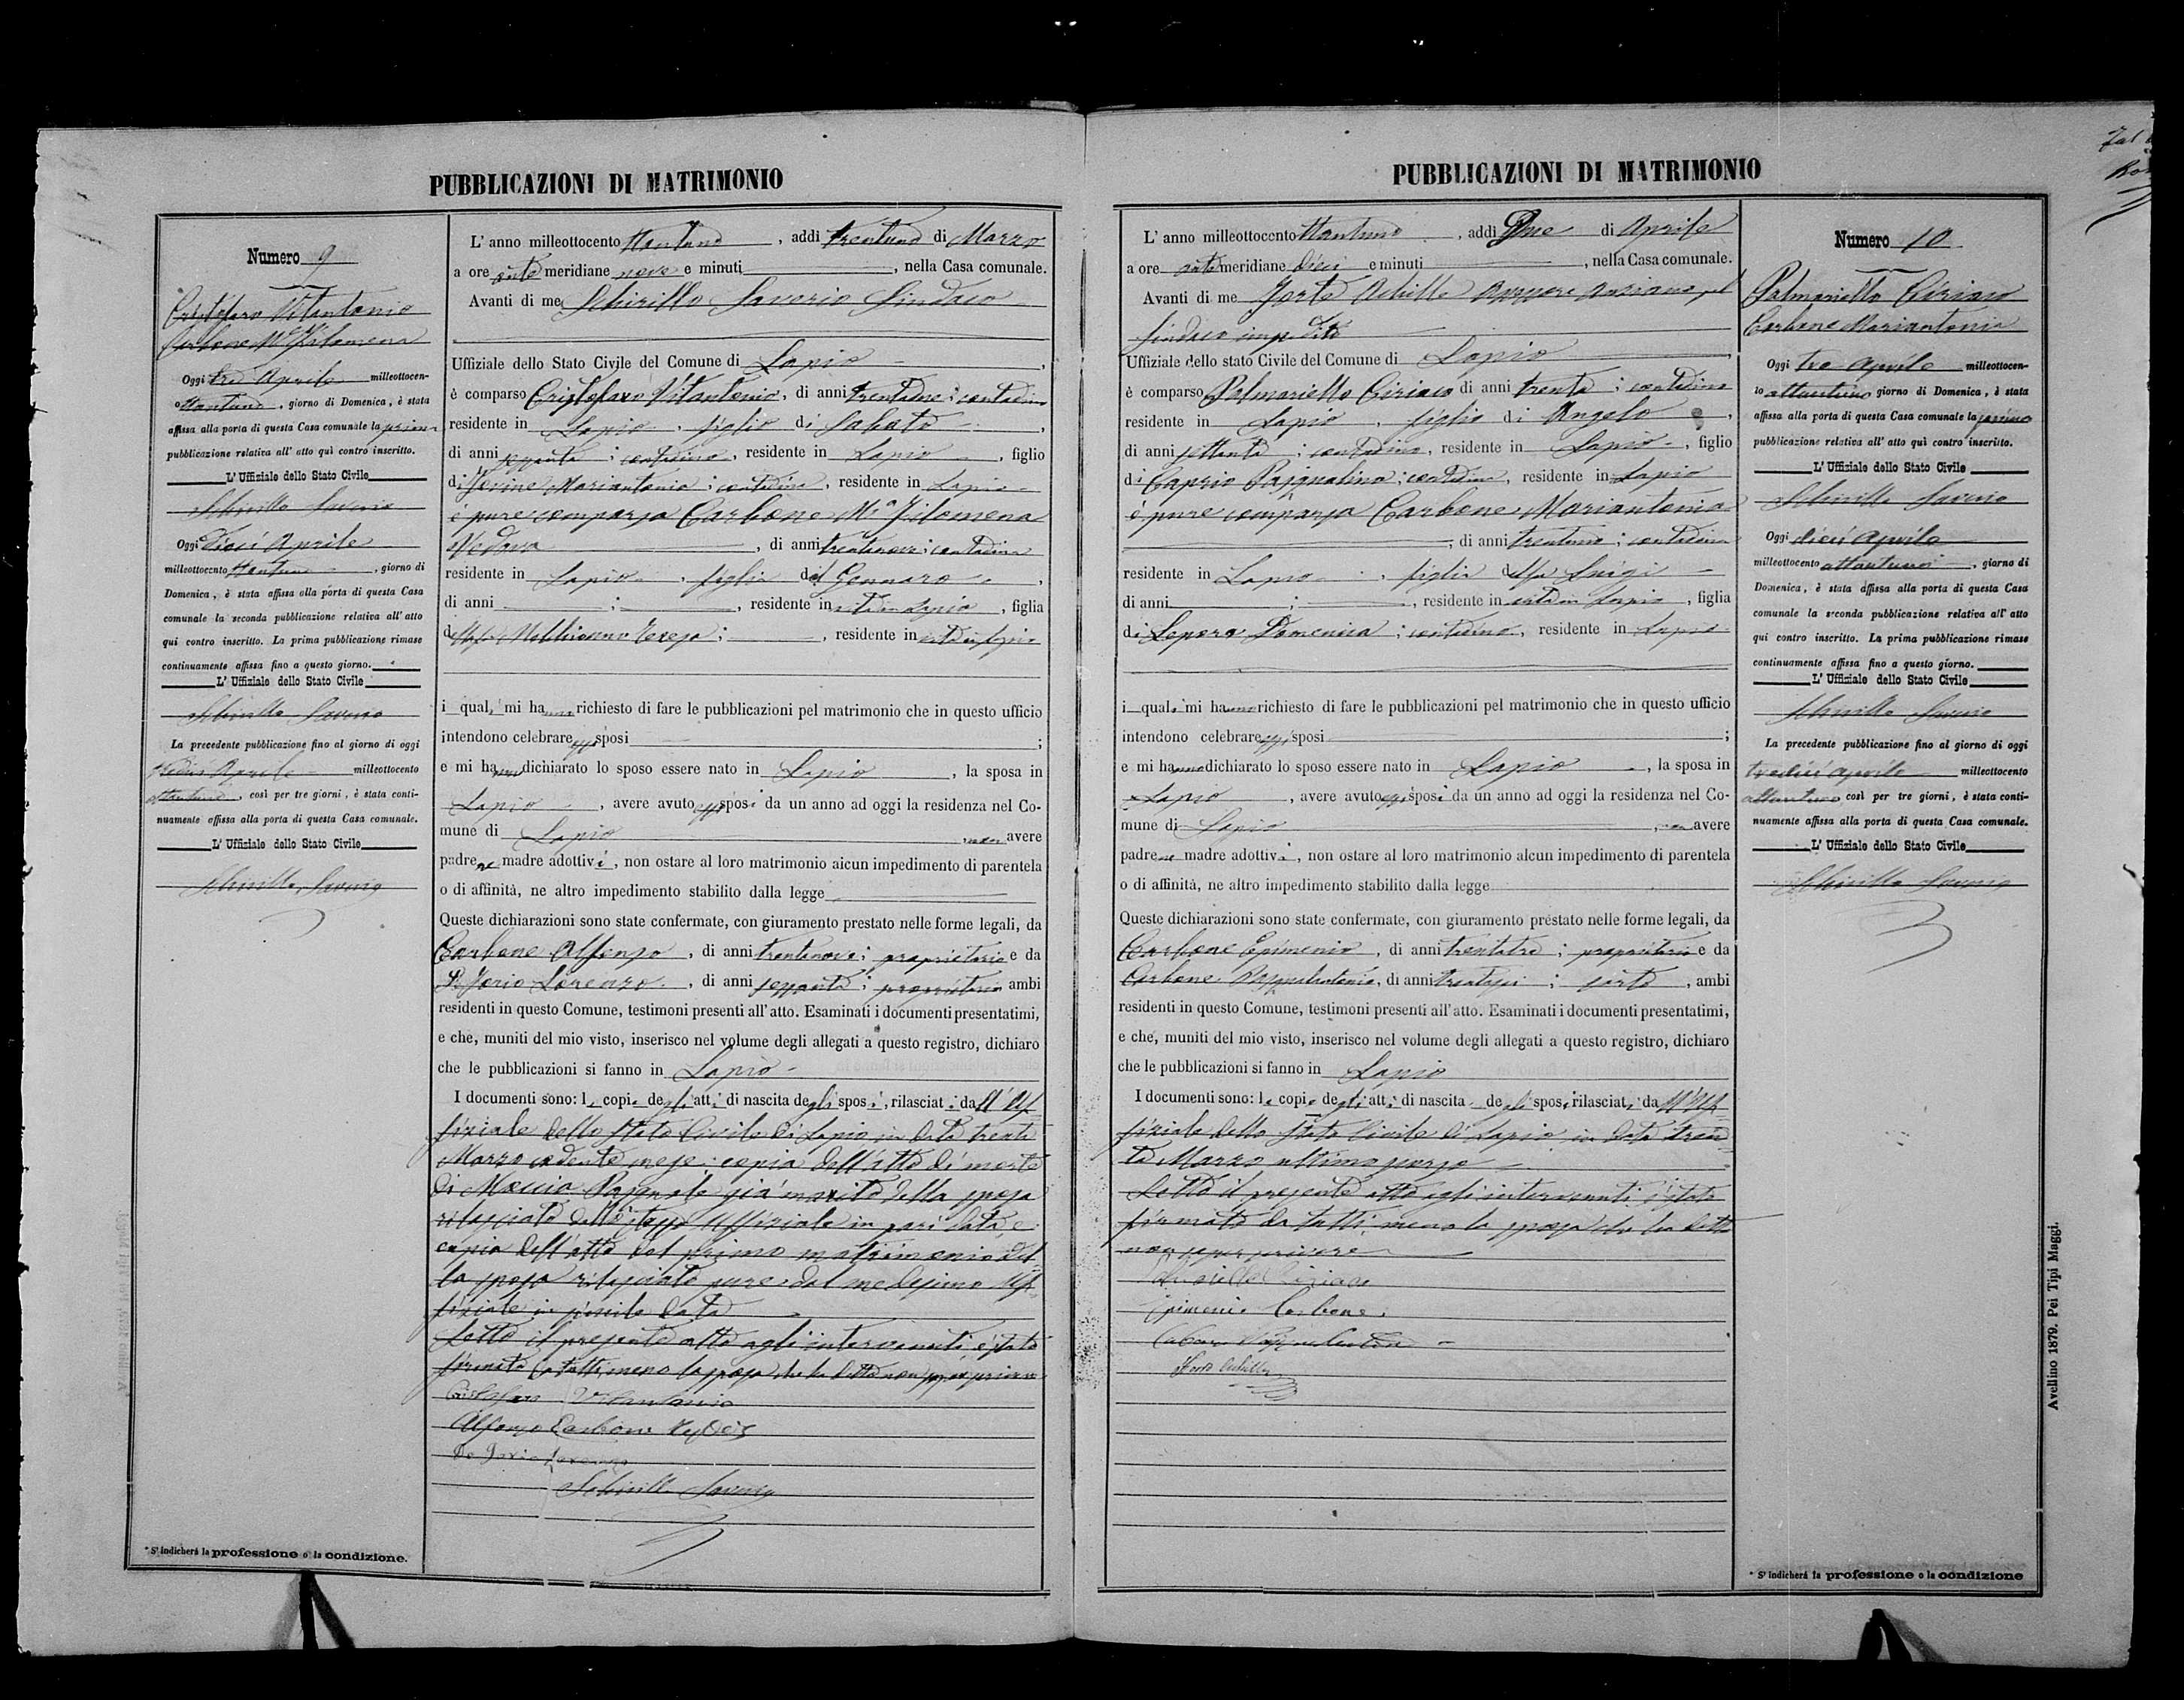 PUBBLICAZIONI DI MATRIMONIO
Numero 9
Cristofaro Vitantonio
Carbone Mª Filomena
Oggi tre Aprile milleottocen-
to ottantuno, giorno di Domenica, è stata
affissa alla porta di questa Casa comunale la prima
pubblicazione relativa all' atto quì contro inscritto.
L' Uffiziale dello Stato Civile
Schirillo Saverio
Oggi dieci Aprile
milleottocento ottantuno, giorno di
Domenica, è stata affissa alla porta di questa Casa
comunale la seconda pubblicazione relativa all' atto
qui contro inscritto. La prima pubblicazione rimase
continuamente affissa fino a questo giorno.
L' Uffiziale dello Stato Civile
Schirillo Saverio
La precedente pubblicazione fino al giorno di oggi
tredici Aprile milleottocento
ottantuno, così per tre giorni, è stata conti-
nuamente affissa alla porta di questa Casa comunale.
L' Uffiziale dello Stato Civile
Schirillo Saverio
* S' indicherà la professione o la condizione.
L' anno milleottocento ottantuno, addi trentuno di Marzo
a ore ante meridiane nove e minuti , nella Casa comunale.
Avanti di me Schirillo Saverio Sindaco
Uffiziale dello Stato Civile del Comune di Lapio,
è comparso Cristofaro Vitantonio, di anni trentadue; contadino
residente in Lapio, figlio di Sabato,
di anni sessanta; contadino, residente in Lapio, figlio
di Jovine Mariantonia; contadina, residente in Lapio
è pure comparsa Carbone Mª Filomena
Vedova, di anni trentanove; contadina
residente in Lapio, figlia del Gennaro,
di anni ; , residente in vita in Lapio, figlia
della fu Teresa; , residente in vita in Lapio
i quali mi hanno richiesto di fare le pubblicazioni pel matrimonio che in questo ufficio
intendono celebrare essi sposi ;
e mi hanno dichiarato lo sposo essere nato in Lapio, la sposa in
Lapio, avere avuto essi sposi da un anno ad oggi la residenza nel Co-
mune di Lapio, non avere
padre ne madre adottivi, non ostare al loro matrimonio alcun impedimento di parentela
o di affinità, ne altro impedimento stabilito dalla legge
Queste dichiarazioni sono state confermate, con giuramento prestato nelle forme legali, da
Carbone Alfonso, di anni trentanove; proprietario e da
De Jorio Lorenzo, di anni sessanta; proprietario ambi
residenti in questo Comune, testimoni presenti all' atto. Esaminati i documenti presentatimi,
e che, muniti del mio visto, inserisco nel volume degli allegati a questo registro, dichiaro
che le pubblicazioni si fanno in Lapio
I documenti sono: le copie degli atti di nascita degli sposi, rilasciati dall' Uf
fiziale dello Stato Civile di Lapio in data trenta
Marzo cadente mese; copia dell' atto di morte
di Moccia Pasquale già marito della sposa
rilasciato dallo stesso Uffiziale in pari data e
copia dell' atto del primo matrimonio del
la sposa rilasciato pure dal medesimo Uf
fiziale in simile data
Letto il presente atto agli intervenuti è stato
firmato da tutti, meno la sposa che ha detto non saper scrivere
Cristofaro Vitantonio
Alfonso Carbone
De Jorio Lorenzo
Schirillo Saverio
PUBBLICAZIONI DI MATRIMONIO
L' anno milleottocento ottantuno, addi Due di Aprile
a ore ante meridiane dieci e minuti , nella Casa comunale.
Avanti di me Forte Achille Assessore Anziano pel
Sindaco impedito
Uffiziale dello stato Civile del Comune di Lapio,
è comparso Palmariello Ciriaco di anni trenta; contadino
residente in Lapio, figlio di Angelo,
di anni settanta; contadino, residente in Lapio, figlio
di Caprio Pasqualina; contadina, residente in Lapio
è pure comparsa Carbone Mariantonia
, di anni trentuno; contadina
residente in Lapio, figlia del fu Luigi
di anni ; , residente in vita in Lapio, figlia
di Lepore Domenica; contadina, residente in Lapio
i quali mi hanno richiesto di fare le pubblicazioni pel matrimonio che in questo ufficio
intendono celebrare essi sposi ;
e mi hanno dichiarato lo sposo essere nato in Lapio, la sposa in
Lapio, avere avuto essi sposi da un anno ad oggi la residenza nel Co-
mune di Lapio, non avere
padre ne madre adottivi, non ostare al loro matrimonio alcun impedimento di parentela
o di affinità, ne altro impedimento stabilito dalla legge
Queste dichiarazioni sono state confermate, con giuramento prestato nelle forme legali, da
Carbone Epimenio, di anni trentatre; proprietario e da
Carbone Pasqualantonio, di anni trentasei; sarto, ambi
residenti in questo Comune, testimoni presenti all' atto. Esaminati i documenti presentatimi,
e che, muniti del mio visto, inserisco nel volume degli allegati a questo registro, dichiaro
che le pubblicazioni si fanno in Lapio
I documenti sono: le copie degli atti di nascita degli sposi, rilasciati dall' Uf
fiziale dello Stato Civile di Lapio in data tren
ta Marzo ultimo scorso
Letto il presente atto agli intervenuti è stato
firmato da tutti meno la sposa che ha detto
non saper scrivere
Palmariello Ciriaco
Epimenio Carbone
Carbone Pasqualantonio
Forte Achille
Numero 10
Palmariello Ciriaco
Carbone Mariantonia
Oggi tre Aprile milleottocen-
to ottantuno giorno di Domenica, è stata
affissa alla porta di questa Casa comunale la prima
pubblicazione relativa all' atto quì contro inscritto.
L' Uffiziale dello Stato Civile
Schirillo Saverio
Oggi dieci Aprile
milleottocento ottantuno, giorno di
Domenica, è stata affissa alla porta di questa Casa
comunale la seconda pubblicazione relativa all' atto
qui contro inscritto. La prima pubblicazione rimase
continuamente affissa fino a questo giorno.
L' Uffiziale dello Stato Civile
Schirillo Saverio
La precedente pubblicazione fino al giorno di oggi
tredici Aprile milleottocento
ottantuno così per tre giorni, è stata conti-
nuamente affissa alla porta di questa Casa comunale.
L' Uffiziale dello Stato Civile
Schirillo Saverio
* S' indicherà la professione o la condizione
Avellino 1879. Pei Tipi Maggi.